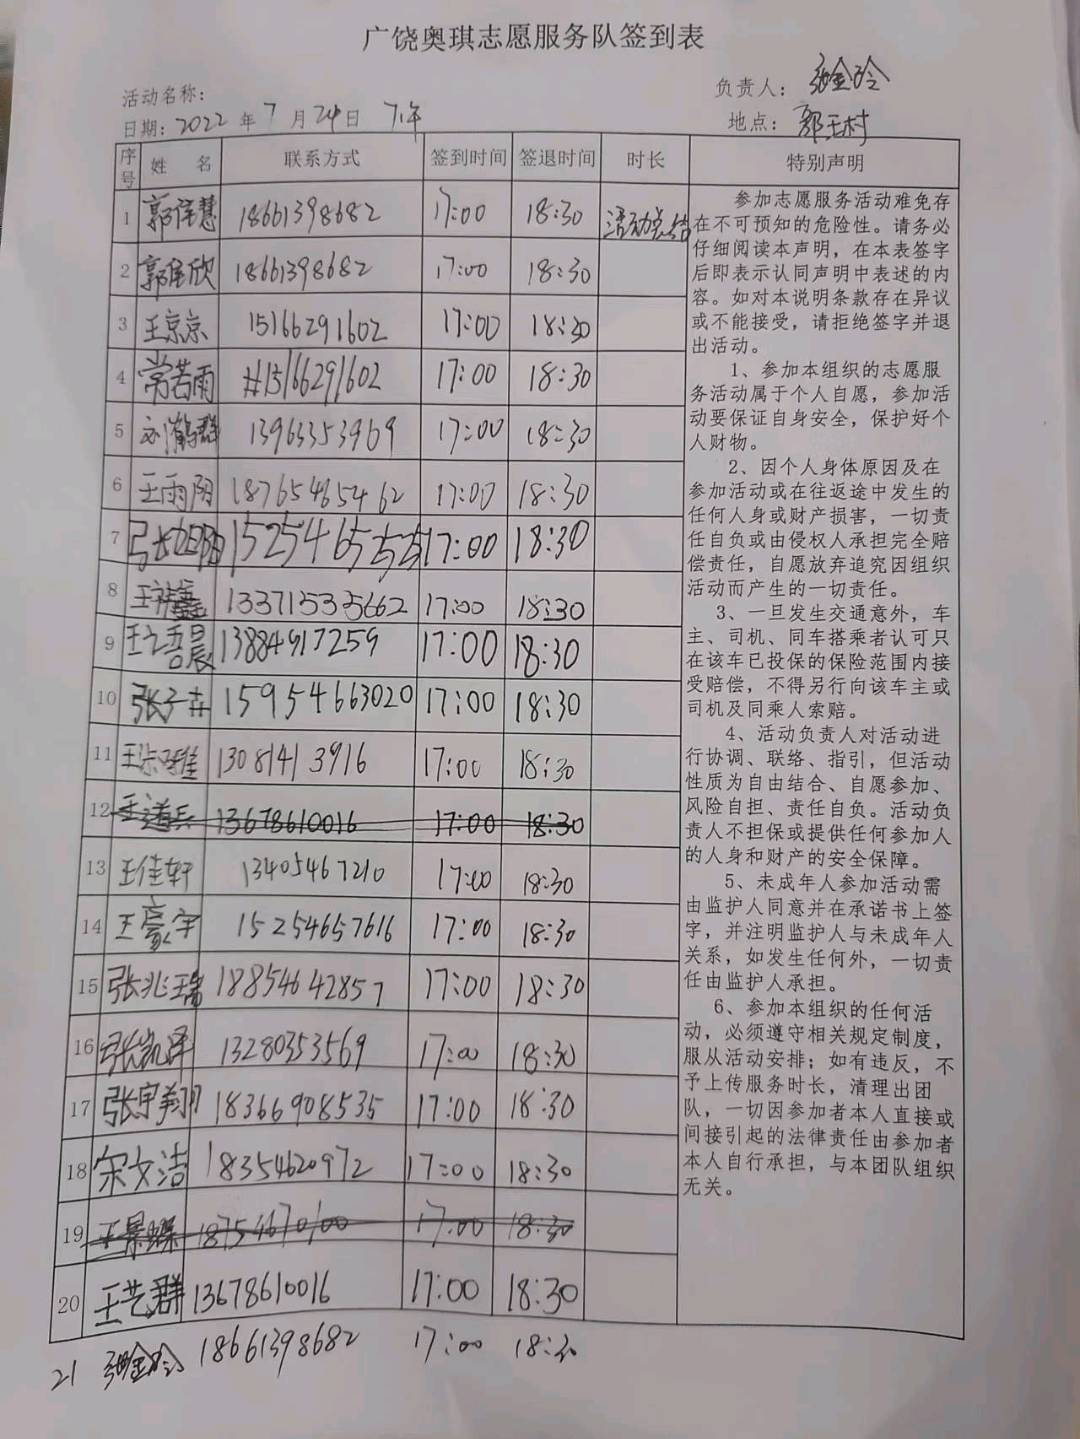 广饶奥琪志愿服务队签到表
活动名称: 负责人: 张金玲
日期:2022年7月24日 下午 地点: 郭王村
序号 姓名 联系方式 签到时间 签退时间 时长 特别声明
1 郭佳慧 18661398682 17:00 18:30 活动总结
2 郭佳欣 18661398682 17:00 18:30
3 王京京 15166291602 17:00 18:30
4 常若雨 15166291602 17:00 18:30
5 刘 群 13963353969 17:00 18:30
6 王雨阳 18765465462 17:00 18:30
7 张旭阳 17:00 18:30
8 王 鑫 13371535662 17:00 18:30
9 王 晨 13884917259 17:00 18:30
10 张子卉 15954663020 17:00 18:30
11 王宗雄 13081413916 17:00 18:30
12 王道兵 13678610016 17:00 18:30
13 王佳轩 13405467210 17:00 18:30
14 王豪宇 15254657616 17:00 18:30
15 张兆瑞 18854642857 17:00 18:30
16 张凯泽 13280353569 17:00 18:30
17 张宇翔 18366908535 17:00 18:30
18 宋文洁 18354620972 17:00 18:30
19 王景蝶 18754670100 17:00 18:30
20 王艺群 13678610016 17:00 18:30
21 张金玲 18661398682 17:00 18:30
参加志愿服务活动难免存
在不可预知的危险性。请务必
仔细阅读本声明，在本表签字
后即表示认同声明中表述的内
容。如对本说明条款存在异议
或不能接受，请拒绝签字并退
出活动。
1、参加本组织的志愿服
务活动属于个人自愿，参加活
动要保证自身安全，保护好个
人财物。
2、因个人身体原因及在
参加活动或在往返途中发生的
任何人身或财产损害，一切责
任自负或由侵权人承担完全赔
偿责任，自愿放弃追究因组织
活动而产生的一切责任。
3、一旦发生交通意外，车
主、司机、同车搭乘者认可只
在该车已投保的保险范围内接
受赔偿，不得另行向该车主或
司机及同乘人索赔。
4、活动负责人对活动进
行协调、联络、指引，但活动
性质为自由结合、自愿参加、
风险自担、责任自负。活动负
责人不担保或提供任何参加人
的人身和财产的安全保障。
5、未成年人参加活动需
由监护人同意并在承诺书上签
字，并注明监护人与未成年人
关系，如发生任何外，一切责
任由监护人承担。
6、参加本组织的任何活
动，必须遵守相关规定制度，
服从活动安排；如有违反，不
予上传服务时长，清理出团
队，一切因参加者本人直接或
间接引起的法律责任由参加者
本人自行承担，与本团队组织
无关。